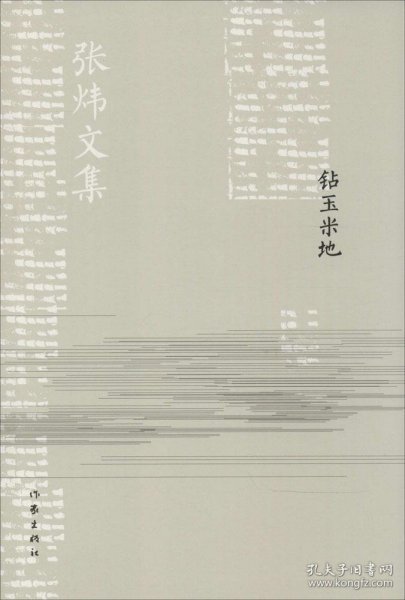 张炜文集
钻玉米地
作家出版社
孔夫子旧书网
www.kongfz.com